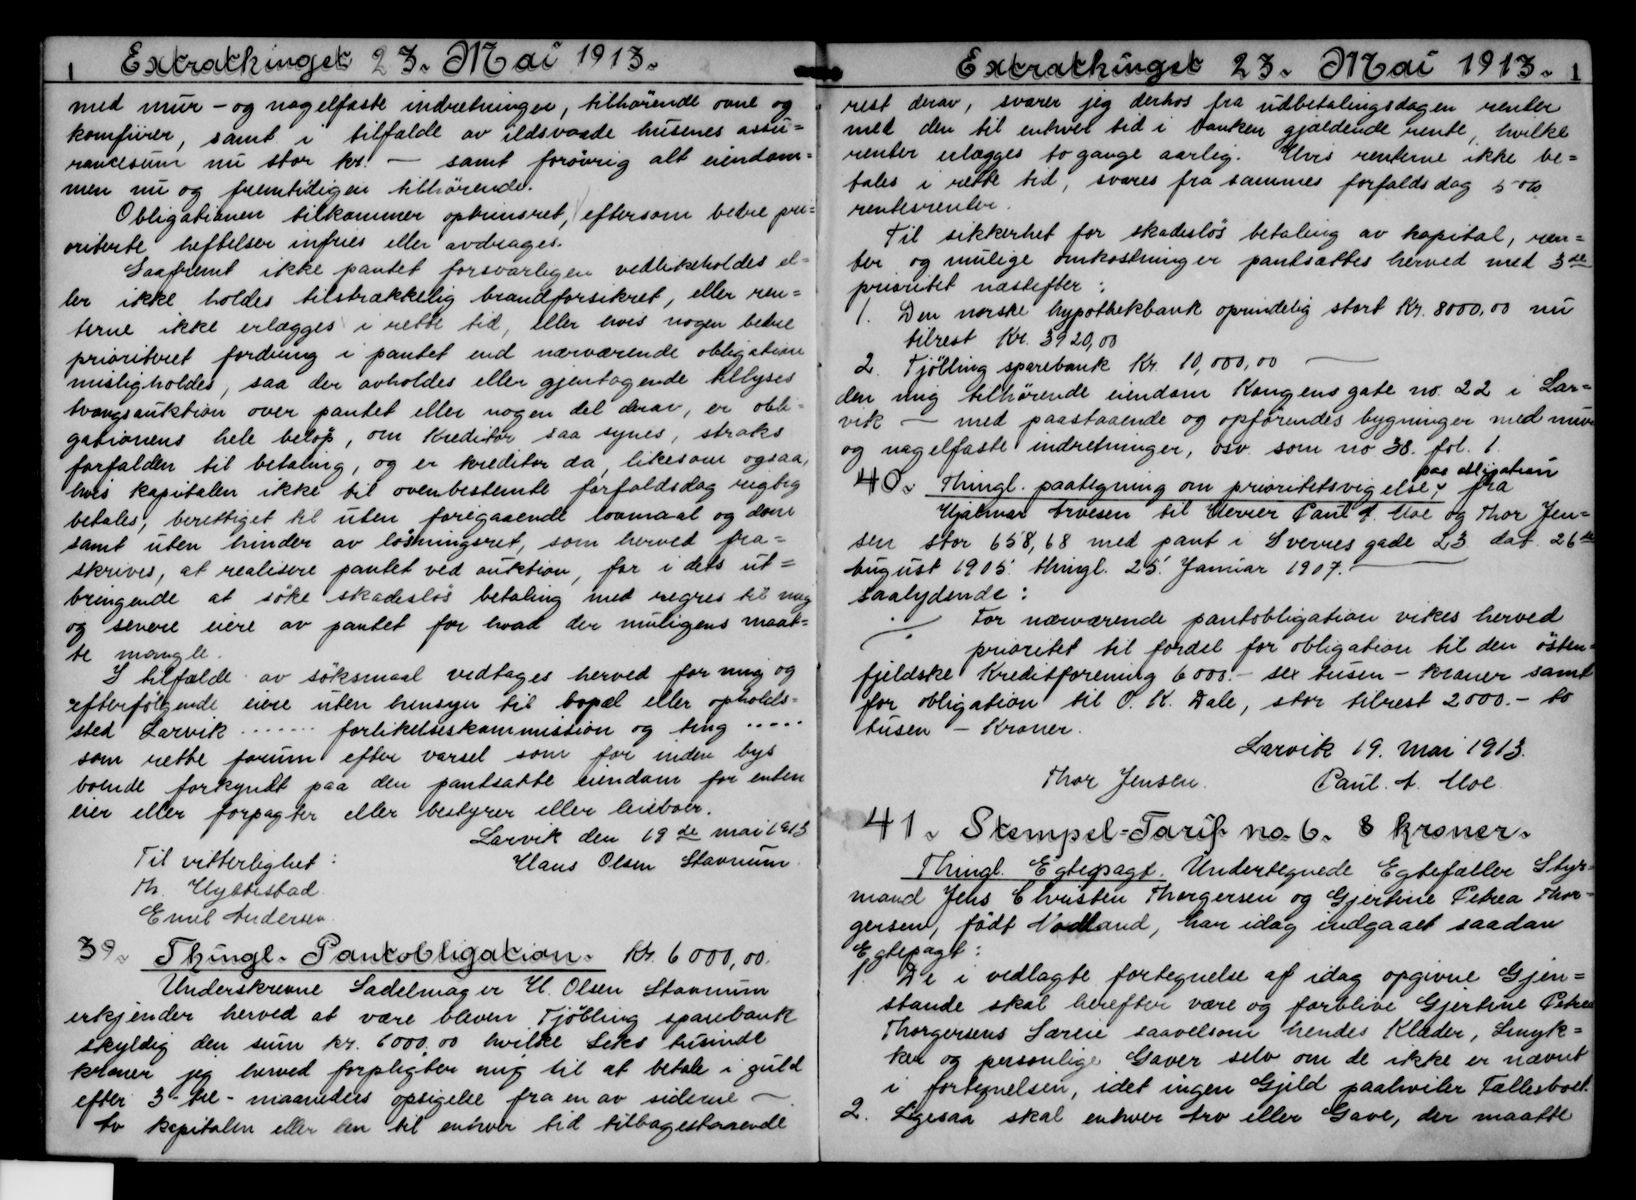 1 Extrathinget 23. Mai 1913.
med mur- og nagelfaste indretninger, tilhørende ovne og
komfurer, samt i tilfælde av ildsvaade husenes assu=
rancesum nu stor kr. — samt forøvrig alt eiendom=
men nu og fremtidigen tilhørende.
Obligationen tilkommer optrinsret, eftersom bedre pri=
oriterte heftelser infries eller avdrages.
Saafremt ikke pantet forsvarligen vedlikeholdes el=
ler ikke holdes tilstrækkelig brandforsikret, eller ren=
terne ikke erlægges i rette tid, eller hvis nogen bedre
prioritert fordring i pantet end nærværende obligation
misligholdes, saa der avholdes eller gjentagende tillyses
tvangsauktion over pantet eller nogen del derav, er obli=
gationens hele beløp, om kreditor saa synes, straks
forfalden til betaling, og er kreditor da, likesom ogsaa,
hvis kapitalen ikke til ovenbestemte forfaldsdag rigtig
betales, berettiget til uten foregaaende lovmaal og dom
samt uten hinder av løsningsret, som herved fra=
skrives, at realisere pantet ved auktion, for i dets ut=
bringende at søke skadesløs betaling med regres til mig
og senere eiere av pantet for hvad der muligens maat=
te mangle.
I tilfælde av søksmaal vedtages herved for mig og
efterfølgende eiere uten hensyn til bopæl eller opholds=
sted Larvik ...... forlikelseskommission og ting .....
som rette forum efter varsel som for inden bys
boende forkyndt paa den pantsatte eiendom for enten
eier eller forpagter eller bestyrer eller leieboer.
Larvik den 19de mai 1913
Til vitterlighet: Hans Olsen Stavnum.
Th. Hyttestad.
Emil Andersen.
39. Thingl. Pantobligation. Kr. 6000,00.
Underskrevne Sadelmager H. Olsen Stavnum
erkjender herved at være bleven Tjølling sparebank
skyldig den sum kr. 6000,00 hvilke Seks tusinde
kroner jeg herved forpligter mig til at betale i guld
efter 3-tre-maaneders opsigelse fra en av siderne —.
Av kapitalen eller den til enhver tid tilbagestaaende
Extrathinget 23. Mai 1913. 1
rest derav, svarer jeg derhos fra udbetalingsdagen renter
med den til enhver tid i banken gjældende rente, hvilke
renter erlægges to gange aarlig. Hvis renterne ikke be=
tales i rette tid, svares fra sammes forfaldsdag 5 o/o
rentesrenter.
Til sikkerhet for skadesløs betaling av kapital, ren=
ter og mulige omkostninger pantsættes herved med 3die
prioritet næstefter:
1. Den norske hypothekbank oprindelig stort Kr. 8000,00 nu
tilrest Kr. 3920,00
2. Tjølling sparebank Kr. 10,000,00 —
den mig tilhørende eiendom Kongensgate no. 22 i Lar=
vik — med paastaaende og opførendes bygninger med mur
og nagelfaste indretninger, osv. som no 38. fol. 1.
40. Thingl. paategning om prioritetsvigelse, paa obligation fra
Hjalmar Arvesen til Herrer Paul A. Moe og Thor Jen=
sen stor 658,68 med pant i Sverres gade 23 dat. 26de
August 1905. thingl. 25. Januar 1907. —
saalydende:
For nærværende pantobligation vikes herved
prioritet til fordel for obligation til den østen=
fjeldske Kreditforening 6000.- sex tusen - kroner samt
for obligation til O. K. Dale, stor tilrest 2000.- to
tusen - Kroner.
Larvik 19. mai 1913.
Thor Jensen. Paul. A. Moe.
41. Stempel=Tarif no. 6. 8 kroner.
Thingl. Egtepagt. Undertegnede Egtefæller Styr=
mand Jens Christen Thorgersen og Gjertine Petrea Thor=
gersen, født Nodland, har idag indgaaet saadan
Egtepagt:
1. De i vedlagte fortegnelse af idag opgivne Gjen=
stande skal herefter være og forblive Gjertine Petrea
Thorgersens Særeie saavelsom hendes Klæder, Smyk=
ker og personlige Gaver selv om de ikke er nævnt
i fortegnelsen, idet ingen Gjeld paahviler Fællesboet.
2. Ligesaa skal enhver Arv eller Gave, der maatte